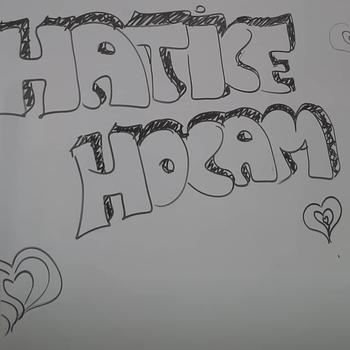 HATİCE
HOCAM